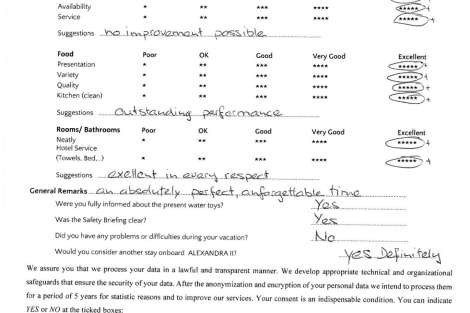 Availability * ** *** **** ***** +
Service * ** *** **** ***** +
Suggestions no improvement possible
Food Poor OK Good Very Good Excellent
Presentation * ** *** **** ***** +
Variety * ** *** **** ***** +
Quality * ** *** **** ***** +
Kitchen (clean) * ** *** **** ***** +
Suggestions outstanding performance
Rooms/ Bathrooms Poor OK Good Very Good Excellent
Neatly * ** *** **** ***** +
Hotel Service
(Towels, Bed,..) * ** *** **** ***** +
Suggestions exellent in every respect
General Remarks an absolutely perfect, unforgettable time
Were you fully informed about the present water toys? Yes
Was the Safety Briefing clear? Yes
Did you have any problems or difficulties during your vacation? No
Would you consider another stay onboard ALEXANDRA II? yes Definitely
We assure you that we process your data in a lawful and transparent manner. We develop appropriate technical and organizational
safeguards that ensure the security of your data. After the anonymization and encryption of your personal data we intend to process them
for a period of 5 years for statistic reasons and to improve our services. Your consent is an indispensable condition. You can indicate
YES or NO at the ticked boxes: